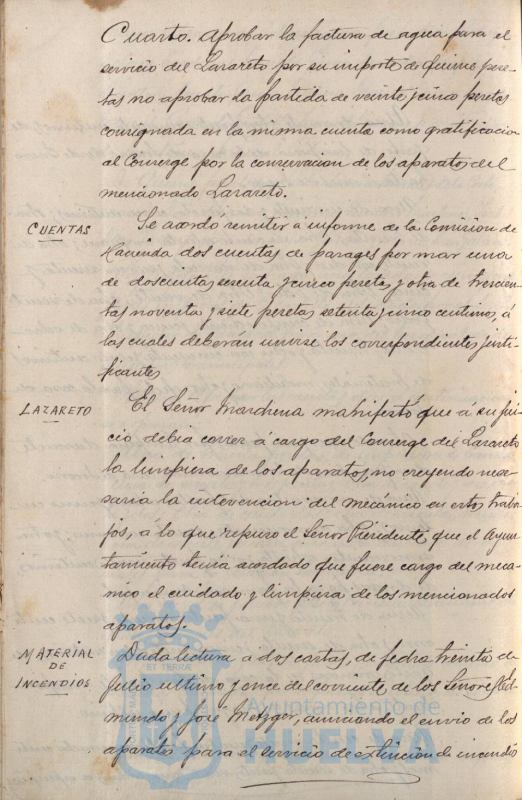 Cuarto. Aprobar la factura de agua para el
servicio del Lazareto por su importe de quince pese-
tas no aprobar la partida de veinte y cinco pesetas
consignada en la misma cuenta como gratificacion
al Converge por la conservacion de los aparatos del
mencionado Lazareto.
CUENTAS
Se acordó remitir á informe de la Comision de
Hacienda dos cuentas de parages por mar una
de doscientas sesenta y cinco pesetas y otra de trescien-
tas noventa y siete pesetas setenta y cinco centimos, á
las cuales deberán unirse los correspondientes justi-
ficantes
LAZARETO
El Señor Marchena manifestó que á su jui-
cio debia correr á cargo del Converge del Lazareto
la limpieza de los aparatos, no creyendo nece-
saria la intervencion del mecánico en estos traba-
jos, á lo que repuso el Señor Presidente, que el Ayun-
tamiento tenia acordado que fuere cargo del mecá-
nico el cuidado y limpieza de los mencionados
aparatos.
MATERIAL
DE
INCENDIOS
Dada lectura á dos cartas, de fecha treinta de
Julio ultimo y once del corriente, de los Señores Ed-
mundo y José Metzger, anunciando el envio de los
aparatos para el servicio de extincion de incendio
Ayuntamiento de
HUELVA